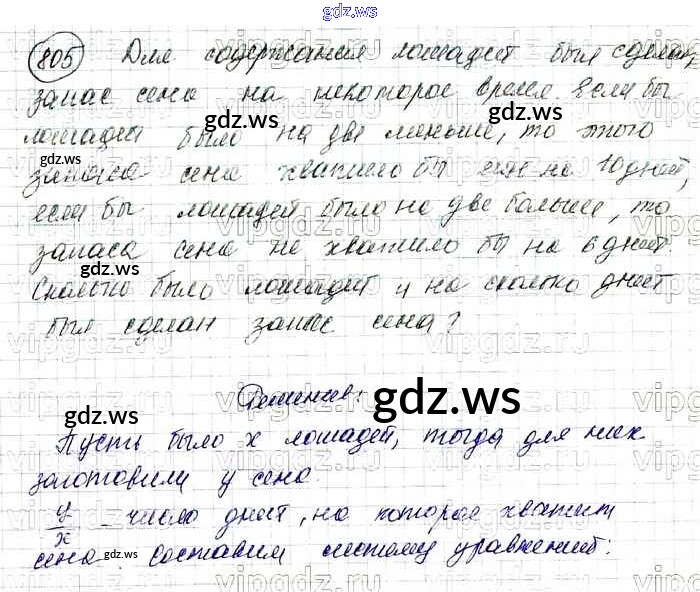 gdz.ws
805 Для содержания лошадей был сделан
запас сена на некоторое время. Если бы
лошадей было на две меньше, то этого
запаса сена хватило бы ещё на 10 дней,
если бы лошадей было на две больше, то
запаса сена не хватило бы на 6 дней
Сколько было лошадей и на сколько дней
был сделан запас сена?
Решение:
gdz.ws
Пусть было x лошадей, тогда для них
заготовили y сена.
y/x - число дней, на которое хватит
сена. Составим систему уравнений: